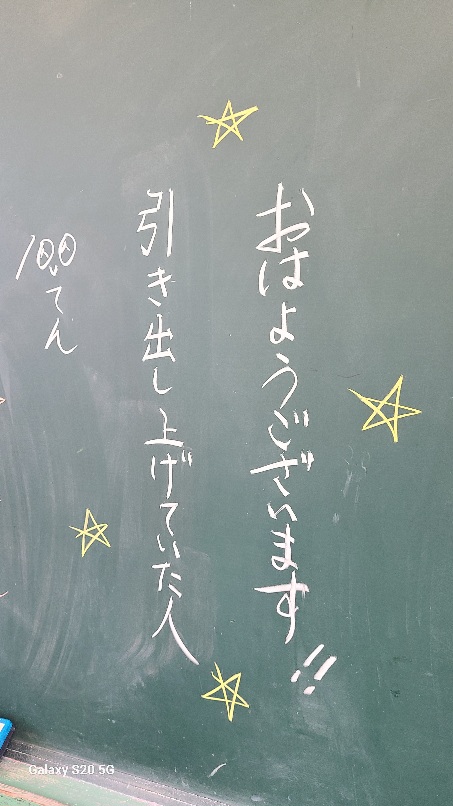 おはようございます!!
引き出し上げていた人
100てん
Galaxy S20 5G